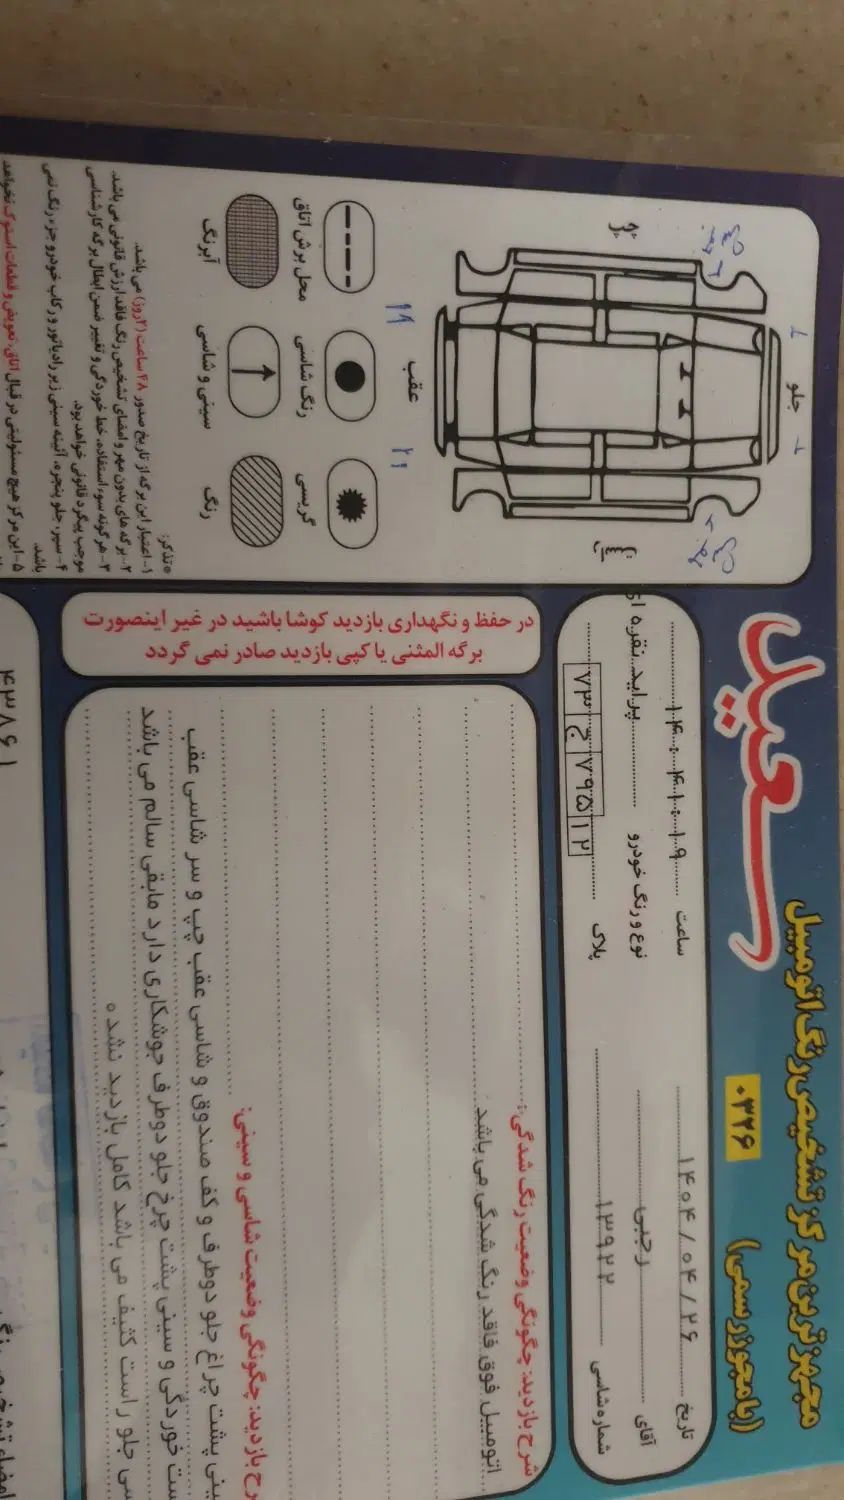 مجهزترین مرکز تشخیص رنگ اتومبیل
سعید
(با مجوز رسمی)
۰۳۲۶
تاریخ ۱۴۰۴/۰۴/۲۶ ساعت ۱۴:۴۱:۱۹
آقای رجبی نوع و رنگ خودرو پراید نقره ای
شماره شاسی ۱۳۹۲۲ پلاک ۱۲ ۷۹۵ ج ۷۳
شرح بازدید: چگونگی وضعیت رنگ شدگی:
اتومبیل فوق فاقد رنگ شدگی می باشد
شرح بازدید: چگونگی وضعیت شاسی و سینی:
سینی پشت چراغ جلو دوطرف و کف صندوق و شاسی عقب چپ و سر شاسی عقب
خوردگی و سینی پشت چرخ جلو دوطرف جوشکاری دارد مابقی سالم می باشد
جلو راست کثیف می باشد کامل بازدید نشده
در حفظ و نگهداری بازدید کوشا باشید در غیر اینصورت
برگه المثنی یا کپی بازدید صادر نمی گردد
جلو
عقب
چپ
راست
محل برش اتاق
رنگ شاسی
گریسی
آبرنگ
سینی و شاسی
رنگ
*تذکر:
۱- اعتبار این برگه از تاریخ صدور ۴۸ ساعت (۲روز) می باشد.
۲- برگه های بدون مهر و امضای تشخیص رنگ فاقد ارزش قانونی می باشد.
۳- هرگونه سوء استفاده، خط خوردگی و تغییر ضمن ابطال برگه کارشناسی
موجب پیگرد قانونی خواهد بود.
۴- سپر، جلو پنجره، آئینه سینی زیر رادیاتور و رکاب خودرو جزء رنگ نمی
باشد.
۵- این مرکز هیچ مسئولیتی در قبال اتاق، تعویض و قطعات استوک نخواهد
۴۳۸۶۱